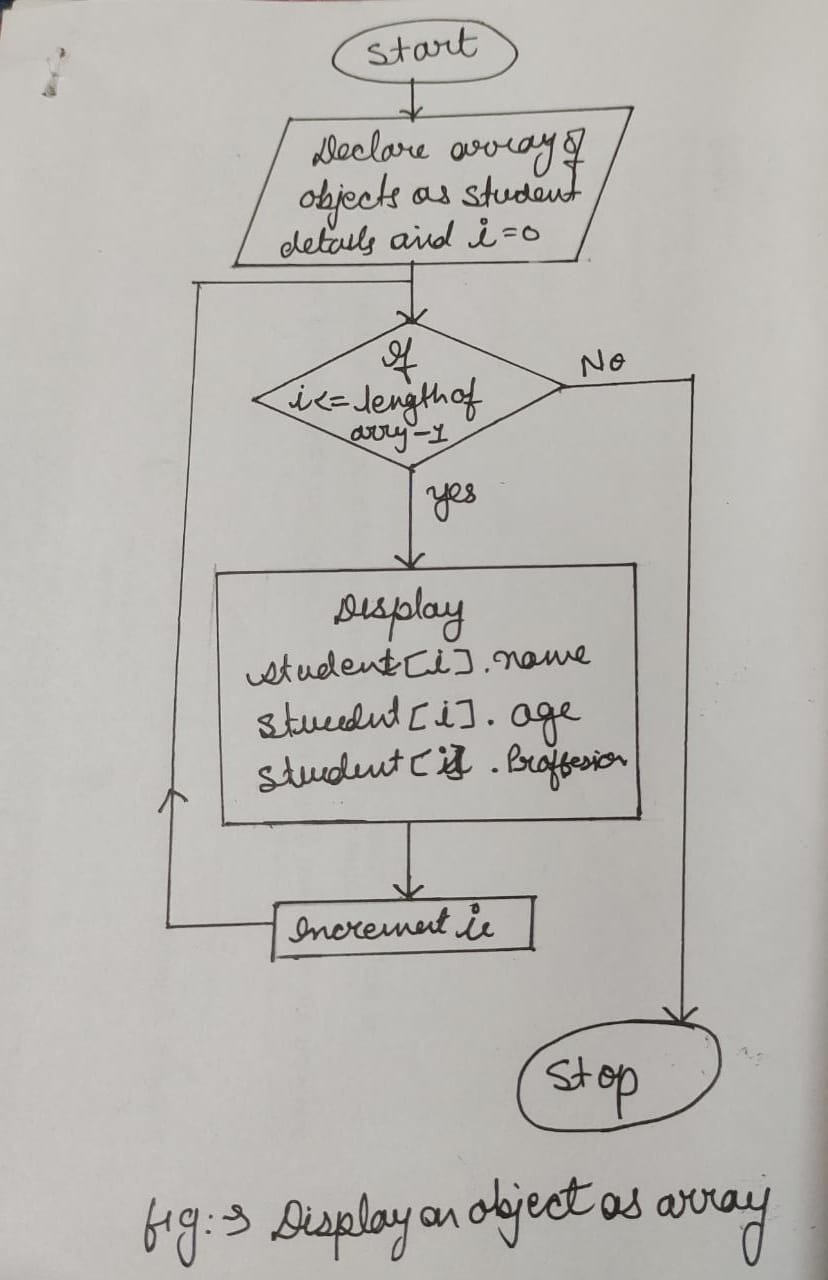 Start
Declare array of
objects as student
details and i=0
If
i<= length of
arry-1
No
yes
Display
student[i].name
student[i]. age
student[i] . Proffesion
Increment i
Stop
fig:3 Display an object as array